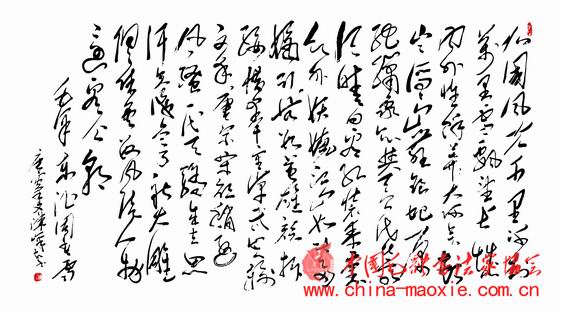 北国风光千里冰封
万里雪飘望长城
内外惟余莽莽大河上下
山舞银蛇原
驰蜡象欲与天公试比高
须晴日看红装素裹
分外妖娆江山如此多
娇引无数英雄竞折
腰惜秦皇汉武略输
文采唐宗宋祖稍逊
风骚一代天骄成吉思
汗只识弯弓射大雕
俱往矣数风流人物
还看今朝
毛泽东沁园春雪
www.china-maoxie.com.cn